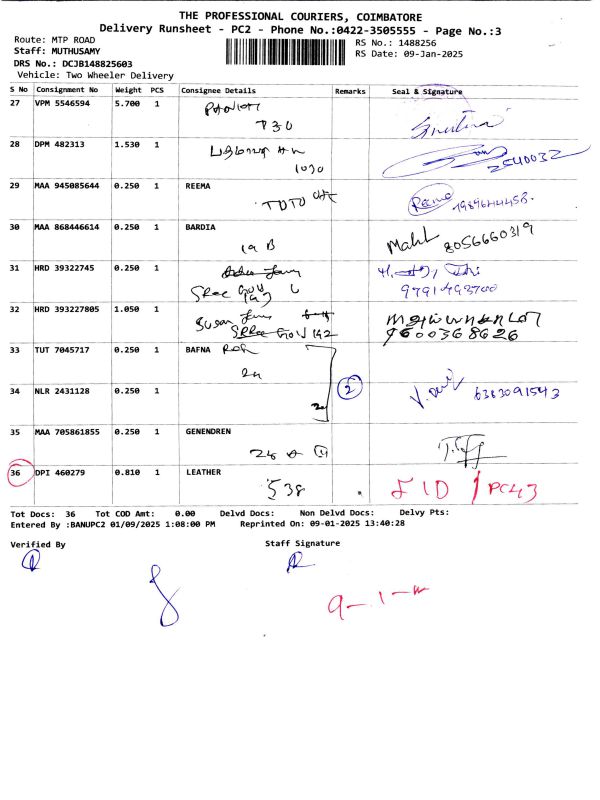 THE PROFESSIONAL COURIERS, COIMBATORE
Delivery Runsheet - PC2 - Phone No.:0422-3505555 - Page No.:3
Route: MTP ROAD
RS No.: 1488256
Staff: MUTHUSAMY
RS Date: 09-Jan-2025
DRS No.: DCJB148825603
Vehicle: Two Wheeler Delivery
S No Consignment No Weight PCS Consignee Details Remarks Seal & Signature
27 VPM 5546594 5.700 1
730
28 DPM 482313 1.530 1
1030 2540032
29 MAA 945085644 0.250 1 REEMA
Reema
30 MAA 868446614 0.250 1 BARDIA
19 B 8056660319
31 HRD 39322745 0.250 1
9791493700
32 HRD 393227805 1.050 1
Susan
9600368626
33 TUT 7045717 0.250 1 BAFNA
34 NLR 2431128 0.250 1
2 6383091543
35 MAA 705861855 0.250 1 GENENDREN
36 DPI 460279 0.810 1 LEATHER
538 ID / PC43
Tot Docs: 36 Tot COD Amt: 0.00 Delvd Docs: Non Delvd Docs: Delvy Pts:
Entered By :BANUPC2 01/09/2025 1:08:00 PM Reprinted On: 09-01-2025 13:40:28
Verified By Staff Signature